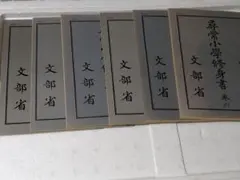 尋常小學修身書 巻六
文部省
文部省
文部省
文部省
文部省
文部省